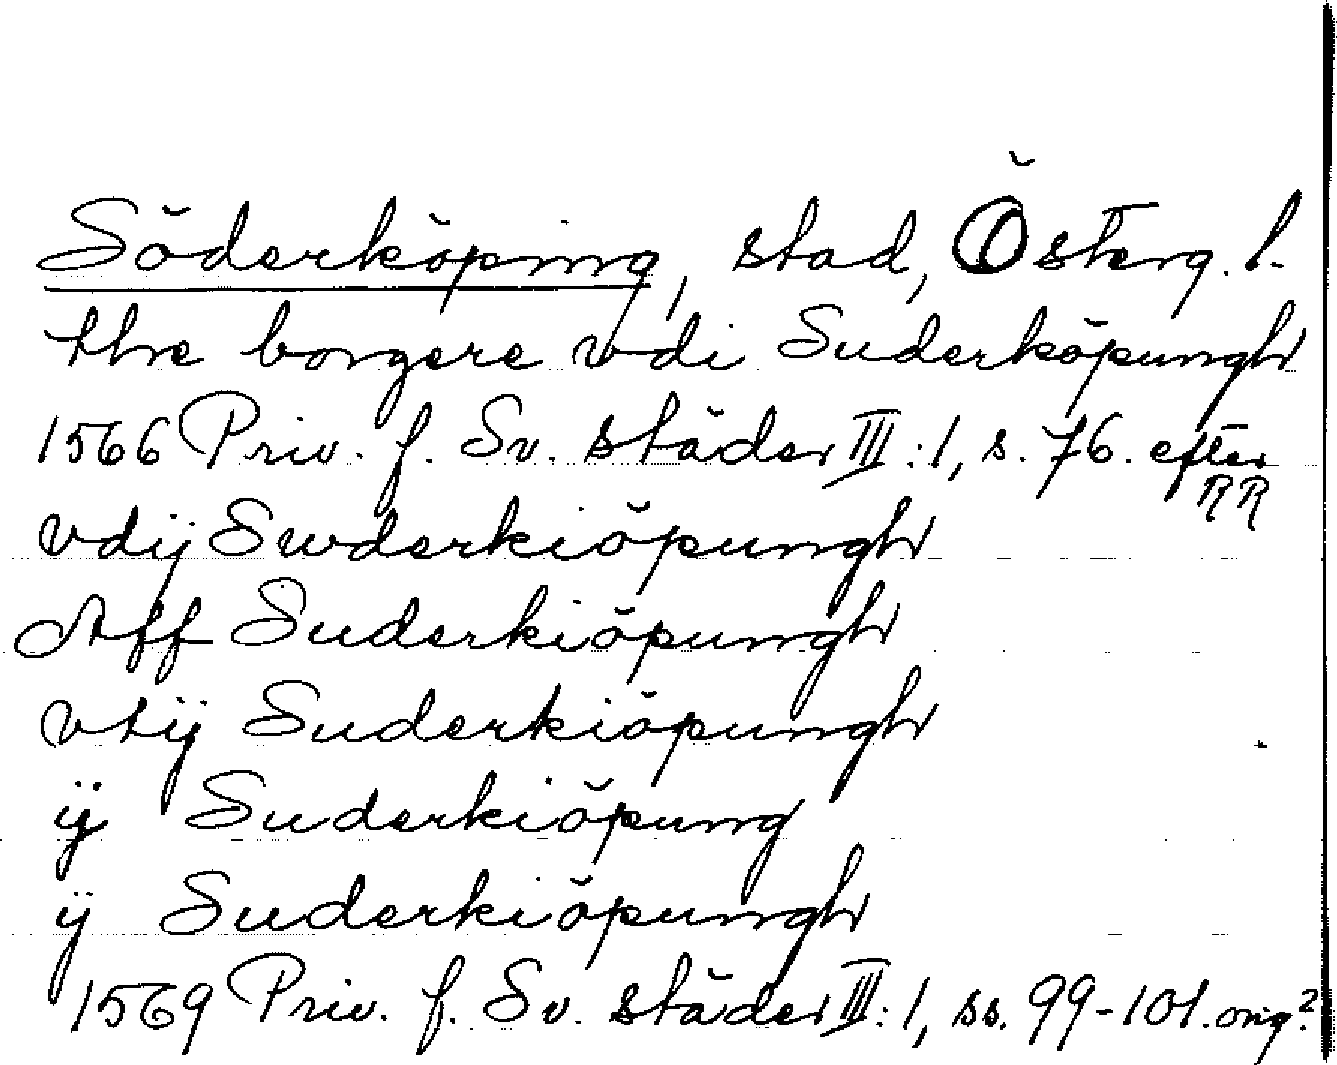 Söderköping, stad, Österg. l.
thre borgere vdi Suderköpungh
1566 Priv. f. Sv. städer III:1, s. 76. efter
RR
vdij Swderkiöpungh
Aff Suderkiöpungh
vtij Suderkiöpungh
ij Suderkiöpung
ij Suderkiöpungh
1569 Priv. f. Sv. städer III:1, ss. 99-101. orig.?